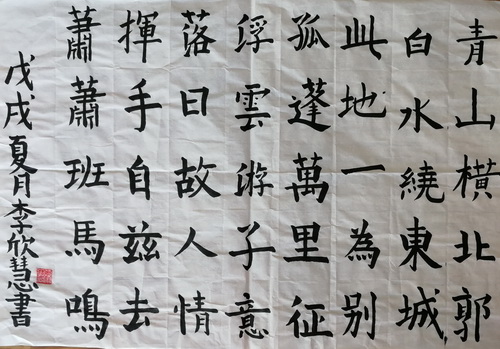 青山橫北郭
白水繞東城
此地一為別
孤蓬萬里征
浮雲游子意
落日故人情
揮手自茲去
蕭蕭班馬鳴
戊戌夏月李欣慧書